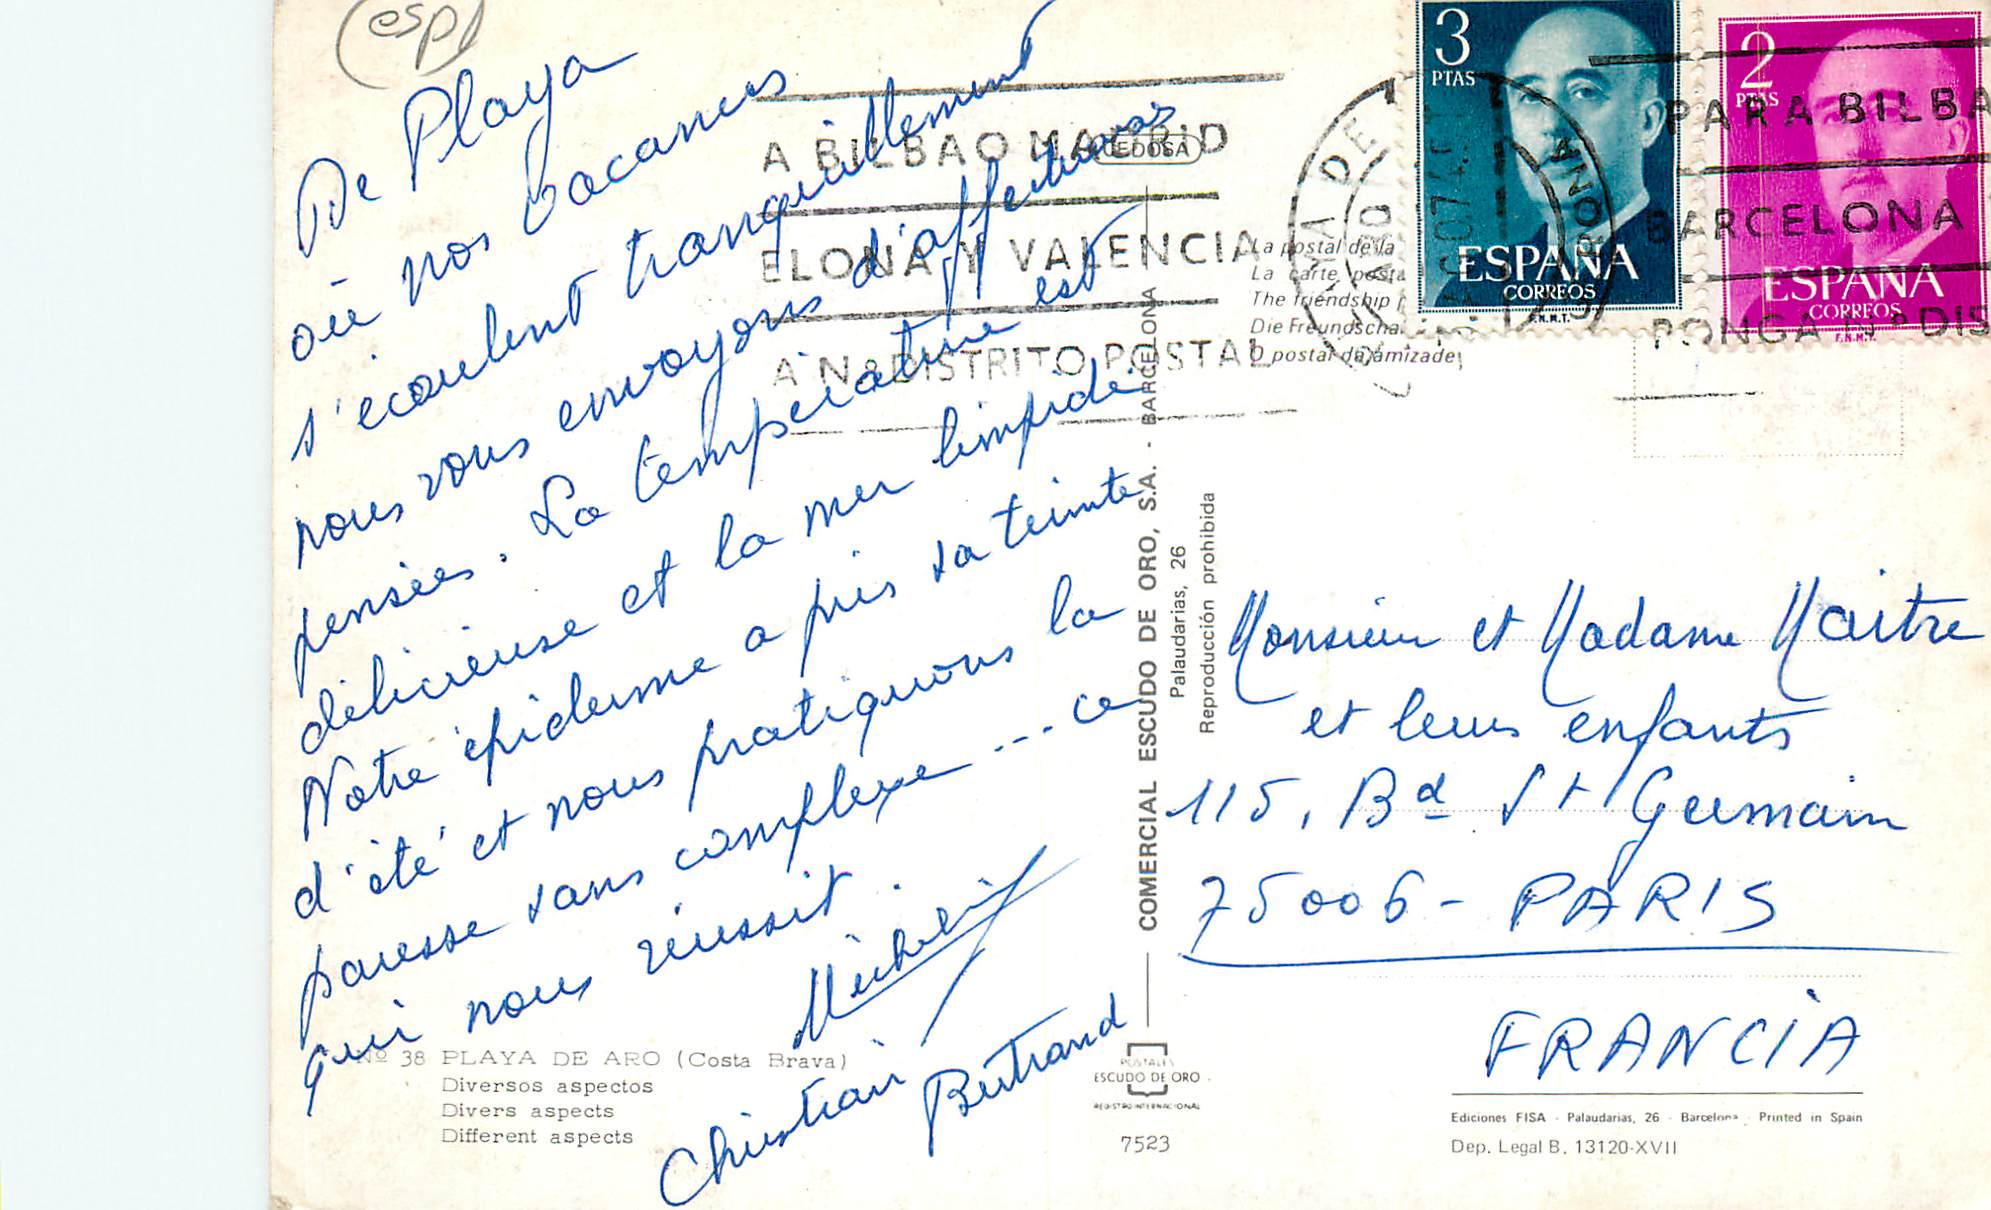 esp
De Playa
où nos vacances
s'écoulent tranquillement
nous vous envoyons d'affectueuses
pensées. La température est
délicieuse et la mer limpide.
Notre épiderme a pris sa teinte
d'été et nous pratiquons la
paresse sans complexe --- ce
qui nous réussit.
Christian
Bertrand
A BILBAO MADRID
ELONA Y VALENCIA
A Nº DISTRITO POSTAL
CEDOSA
La postal de la
La carte posta
The friendship
Die Freundscha
O postal da amizade
3
PTAS
ESPAÑA
CORREOS
F.N.M.T.
2
PTAS
ESPAÑA
CORREOS
F.N.M.T.
PARA BILBA
BARCELONA
PONGA Nº DIS
COMERCIAL ESCUDO DE ORO, S.A. - BARCELONA
Palaudarias, 26
Reproducción prohibida
Monsieur et Madame Maitre
et leurs enfants
115, Bd St Germain
75006 - PARIS
FRANCIA
Nº 38 PLAYA DE ARO (Costa Brava)
Diversos aspectos
Divers aspects
Different aspects
POSTALES
ESCUDO DE ORO
REGISTRO INTERNACIONAL
7523
Ediciones FISA - Palaudarias, 26 - Barcelona - Printed in Spain
Dep. Legal B. 13120-XVII